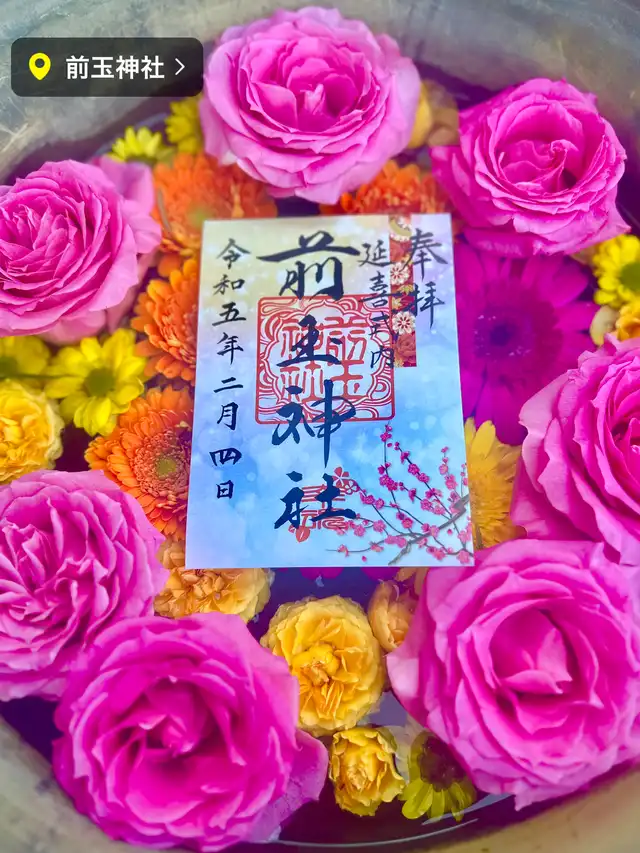 前玉神社
奉拝
延喜式内
前玉神社
令和五年二月四日